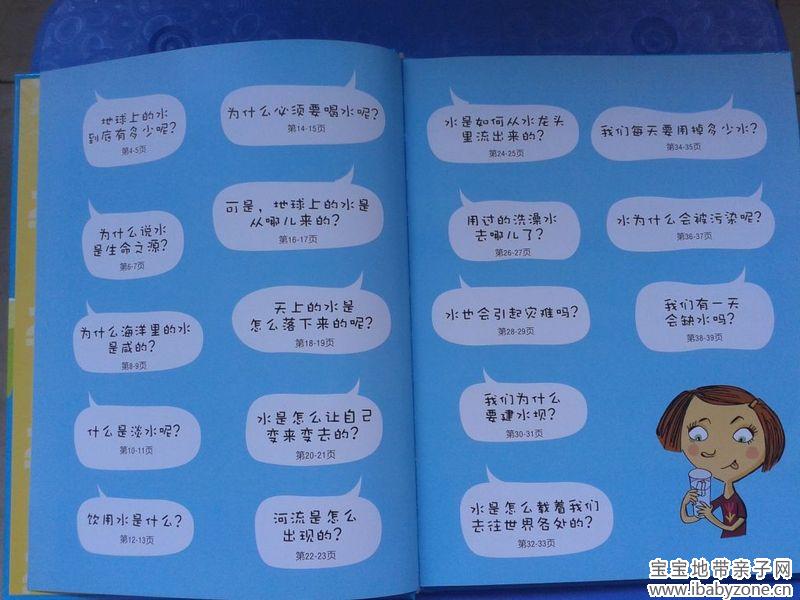 地球上的水
到底有多少呢?
第4-5页
为什么说水
是生命之源?
第6-7页
为什么海洋里的水
是咸的?
第8-9页
什么是淡水呢?
第10-11页
饮用水是什么?
第12-13页
为什么必须要喝水呢?
第14-15页
可是，地球上的水是
从哪儿来的?
第16-17页
天上的水是
怎么落下来的呢?
第18-19页
水是怎么让自己
变来变去的?
第20-21页
河流是怎么
出现的?
第22-23页
水是如何从水龙头
里流出来的?
第24-25页
用过的洗澡水
去哪儿了?
第26-27页
水也会引起灾难吗?
第28-29页
我们为什么
要建水坝?
第30-31页
水是怎么载着我们
去往世界各处的?
第32-33页
我们每天要用掉多少水?
第34-35页
水为什么会被污染呢?
第36-37页
我们有一天
会缺水吗?
第38-39页
宝宝地带亲子网
www.ibabyzone.cn